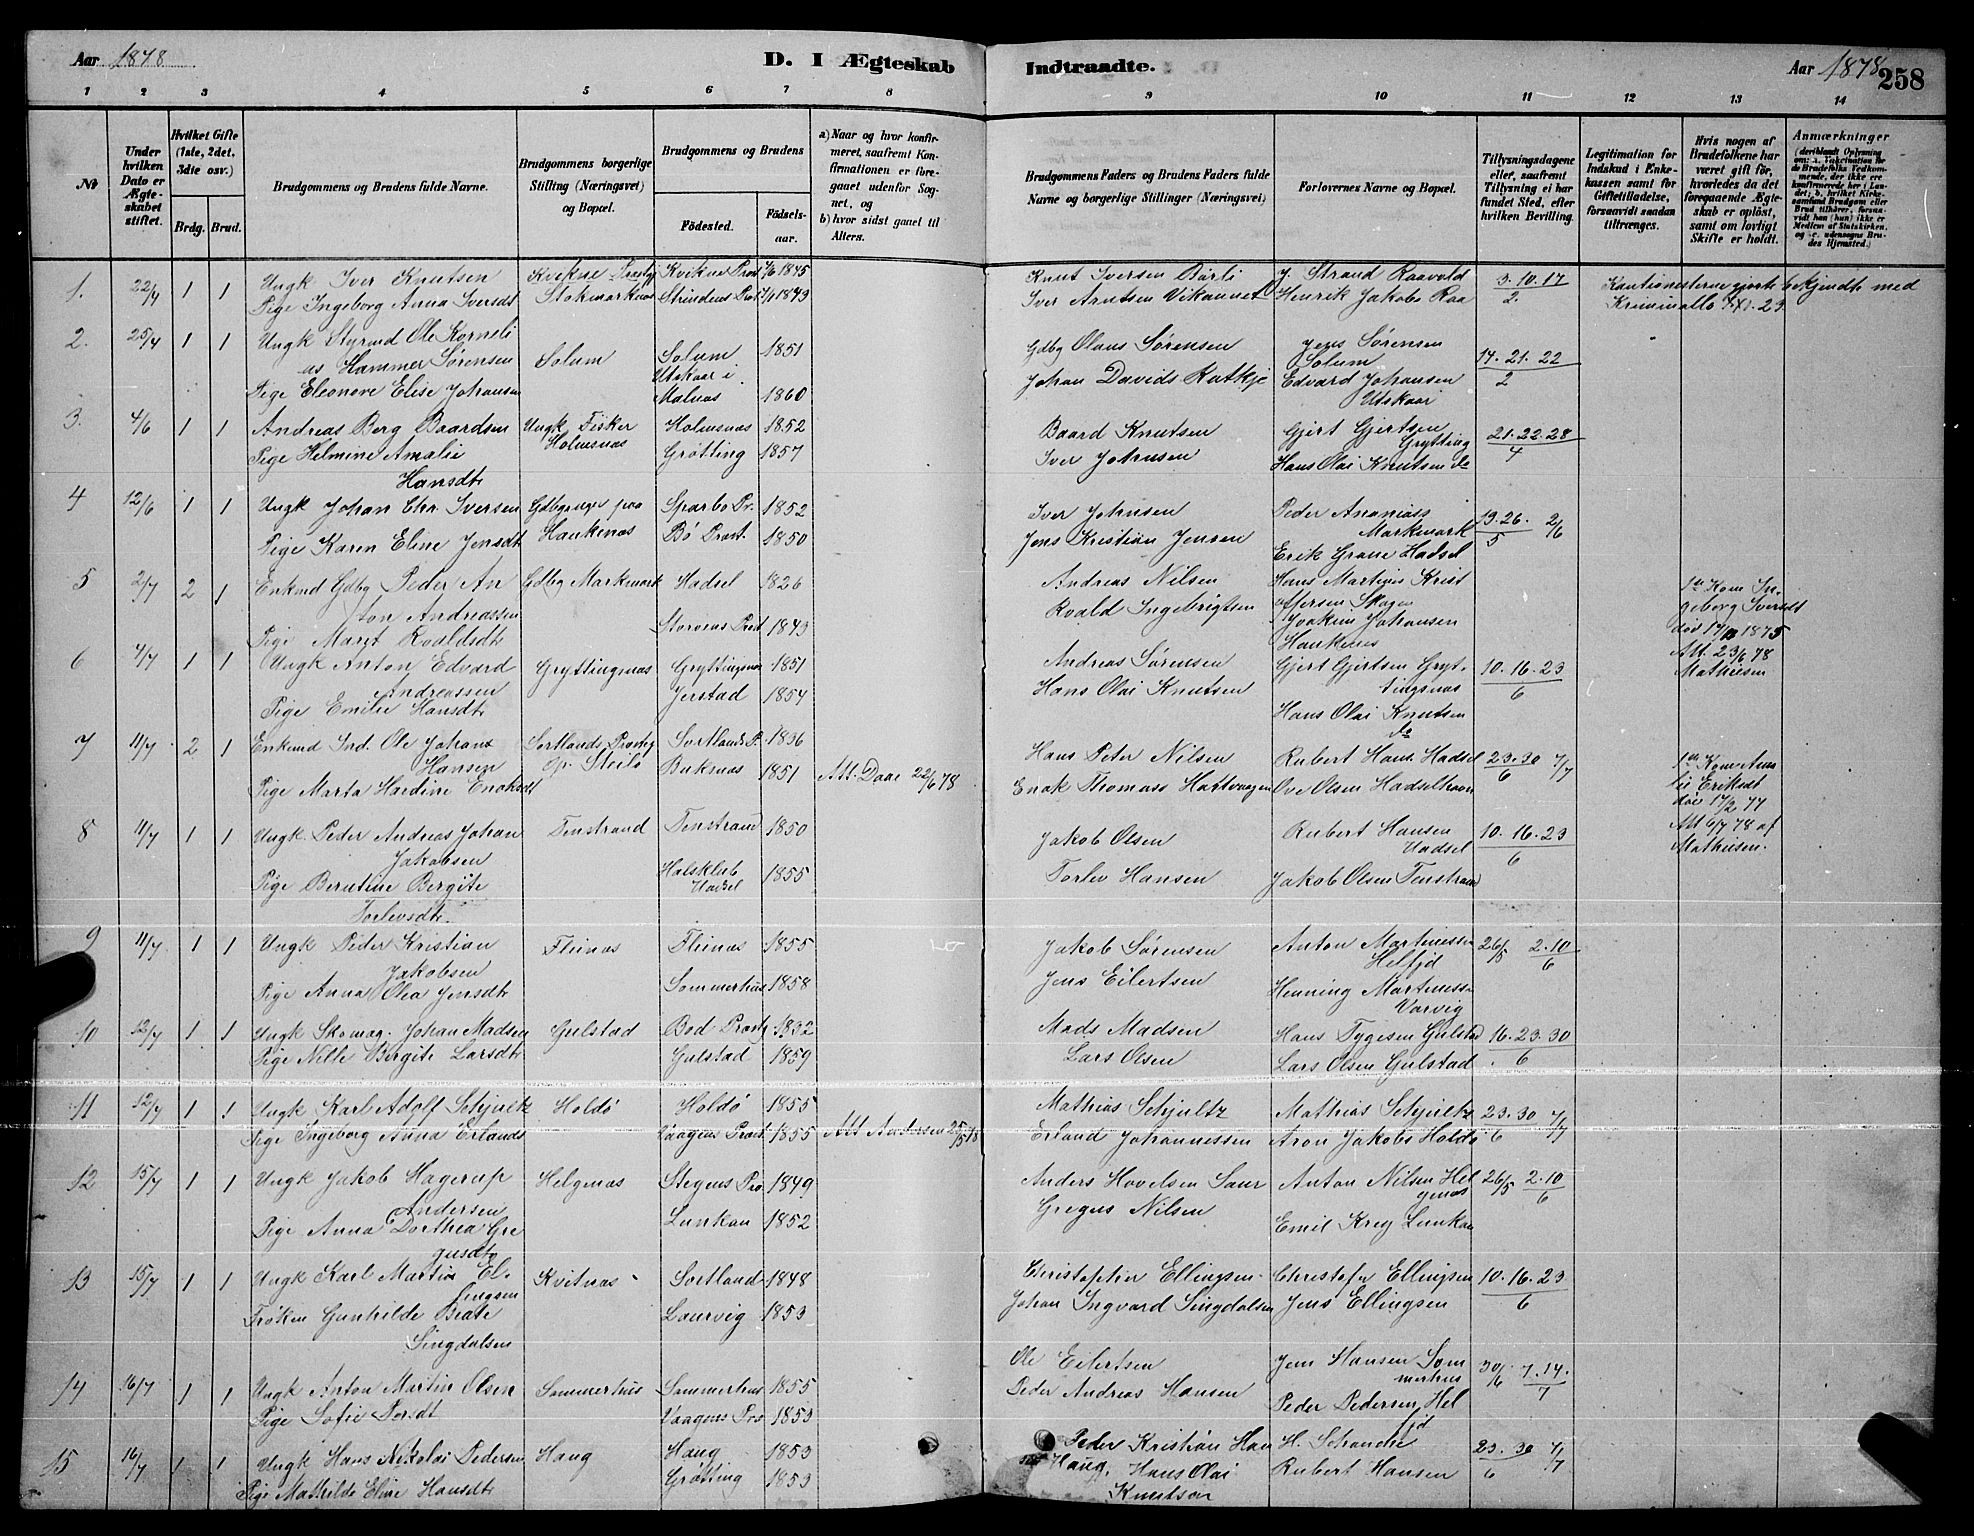 Aar 1878
D. I Ægteskab
Indtraadte.
Aar 1878
258
1 2 3 4 5 6 7 8 9 10 11 12 13 14
№
Under hvilken Dato er Ægteskabet stiftet.
Hvilket Gifte (1ste, 2det, 3die osv.)
Brdg. Brud.
Brudgommens og Brudens fulde Navne.
Brudgommens borgerlige Stilling (Næringsvei) og Bopæl.
Brudgommens og Brudens
Fødested.
Fødselsaar.
a) Naar og hvor konfirmeret, saafremt Konfirmationen er foregaaet udenfor Sognet, og
b) hvor sidst gaaet til Alters.
Brudgommens Faders og Brudens Faders fulde Navne og borgerlige Stillinger (Næringsvei)
Forlovernes Navne og Bopæl.
Tillysningsdagene eller, saafremt Tillysning ei har fundet Sted, efter hvilken Bevilling.
Legitimation for Indskud i Enkekassen samt for Giftetilladelse, forsaavidt saadan tiltrænges.
Hvis nogen af Brudefolkene har været gift før, hvorledes da det foregaaende Ægteskab er opløst, samt om lovligt Skifte er holdt.
Anmærkninger
1. 22/4 1 1 Ungk Iver Knutsen Kvikne Prestgj Kvikne Prest 1845 Knut Iversen Bärli J. Strand Raavold 3. 10. 17 Kautionisterne gjort bekjendt med
Pige Ingeborg Anna Iversdt Stokmarknes Strindens Prst 1849 Iver Arntsen Vikavnet Henrik Jakobs Raa 2. Kriminallo
2. 25/4 1 1 Ungk Styrmd Ole Korneli Solum Solum 1851 Gdbg Olaus Sørensen Jens Sørensen 14. 21. 22
as Hammer Sørensen Utskaar i Solum 2
Pige Eleonore Elise Johansen Malnæs 1860 Johan Davids Kalkje Edvard Johansen
Utskaar
3. 4/6 1 1 Andreas Berg Baardsen Ungk Fisker Holmsnæs 1852 Baard Knutsen Gjert Gjertsen 21. 22. 28
Pige Helmine Amalie Holmsnæs Grøtting 1857 Iver Johnsen Grytting 4
Hansdt Hans Olai Knutsen do
4 12/6 1 1 Ungk Johan Chr. Iversen Gdbruger paa Sparbo Pr. 1852 Iver Johnsen Peder Ananiass 19. 26. 2/6
Pige Karen Eline Jensdt Haukenæs Bö Prst. 1850 Jens Kristian Jensen Markmark 5
Erik Grane Hadsel
5 2/7 2 1 Enkmd Gdbg Peder An Gdbg Markmark Hadsel 1826 Andreas Nilsen Hans Martinus Krist
ton Andreassen Roald Ingebrigtsen offersen Skagen
Pige Marit Roaldsdt 1843 Joakim Johansen
Haukenes
1ste Kone Ingeborg Iversdt död 17/ 1875 Att. 23/6 78 Mathiesen
6 4/7 1 1 Ungk Anton Edvard Gryttingnæs Gryttingnæs 1851 Andreas Sørensen Gjert Gjertsen Gryt- 10. 16. 23
Andreassen Jerstad 1854 Hans Olai Knutsen tingnæs 6
Pige Emilie Hansdt Hans Olai Knutsen do
7 11/7 2 1 Enkmd Ind. Ole Johans Sortlands Prestgj Sortlands P. 1836 Hans Peter Nilsen Rubert Hans. Hadsel 23. 30 7/7
Hansen Steilö Buksnæs 1851 Att. Daae 22/6 78 Enok Thomass Hattvaagen Ove Olsen Hadselhavn 6
Pige Marta Hardine Enoksdt
1ste Kone Amalie Eriksdt död 17/2 77 Att 6/7 78 af Mathiesen.
8 11/7 1 1 Ungk Peder Andreas Johan Tenstrand Tenstrand 1850 Jakob Olsen Rubert Hansen 10. 16. 23
Jakobsen Hadsel 6
Pige Berntine Bergite Halsklub Hadsel 1855 Torlev Hansen Jakob Olsen Tenstrand
Torlevsdt.
9 11/7 1 1 Ungk Peder Kristian Fleinæs Fleinæs 1855 Jakob Sørensen Anton Martinussen 26/5 2. 10
Jakobsen Helfjd 6
Pige Anna Olea Jensdt Sommerhus 1858 Jens Eilertsen Henning Martinussen
Varvig
10 12/7 1 1 Ungk Skomag. Johan Madsen Gulstad Bod. Prestgj 1832 Mads Madsen Hans Tygesen Gulstad 16. 23. 30
Pige Nille Bergite Larsdt Gulstad 1859 Lars Olsen Lars Olsen Gulstad 6
11 12/7 1 1 Ungk Karl Adolf Schjultz Holdö Holdö 1855 Mathias Schjultz Mathias Schjultz 23. 30 7/7
Pige Ingeborg Anna Erlands Vaagens Prst. 1855 Att Andersen 25/5 78 Erland Johannessen Aron Jakobs Holdö 6
12 15/7 1 1 Ungk Jakob Hagerup Helgenæs Stegens Pre 1849 Anders Hovelsen Saur Anton Nilsen Hel 26/5 2. 10
Andersen genæs 6
Pige Anna Dorthea Gre Lunkan 1852 Gregus Nilsen Emil Krey Lunkan
gusdt
13 15/7 1 1 Ungk Karl Martin El- Kvitnæs Sortland 1848 Christopher Ellingsen Christofer Ellingsen 10. 16. 23
lingsen 6
Frøken Gunhilde Beate Laurvig 1853 Johan Ingvard Lingdalsen Jens Ellingsen
Lingdalsen
14 16/7 1 1 Ungk Anton Martin Olsen Sommerhus Sommerhus 1855 Ole Eilertsen Jens Hansen Som 30/6 7. 14.
merhus 7
Pige Sofie Persdt Vaagens Pre 1853 Peder Andreas Hansen Peder Pedersen Hel
fjd
15 16/7 1 1 Ungk Hans Nikolai Pedersen Haug Haug 1853 Peder Kristian Han H. Schanche 23. 30 7/7
sen Haug, Hans Olai 6
Pige Mathilde Eline Hansdt Grøtting 1853 Knutsen Rubert Hansen